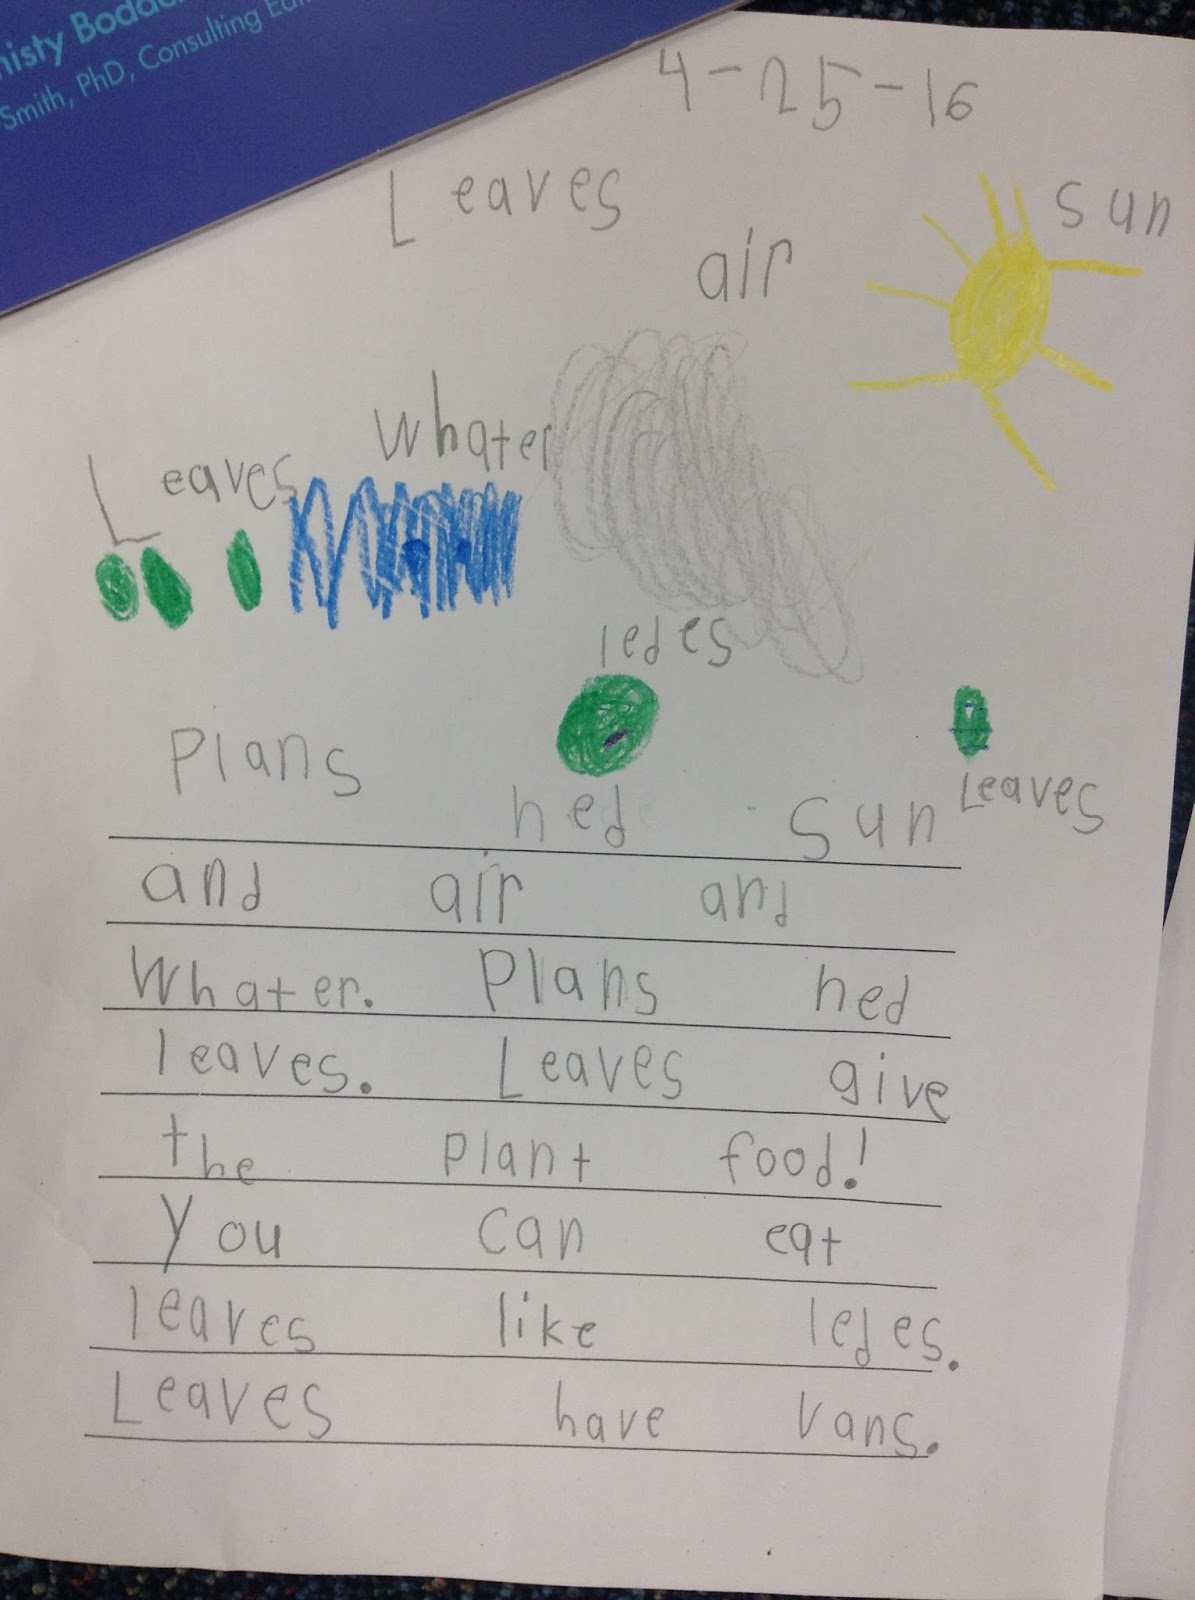 Smith, PhD, Consulting
4-25-16
Leaves
sun
air
Whater
Leaves
ledes
Leaves
Plans hed sun
and air and
Whater. Plans hed
leaves. Leaves give
the plant food!
You can eat
leaves like ledes.
Leaves have vans.